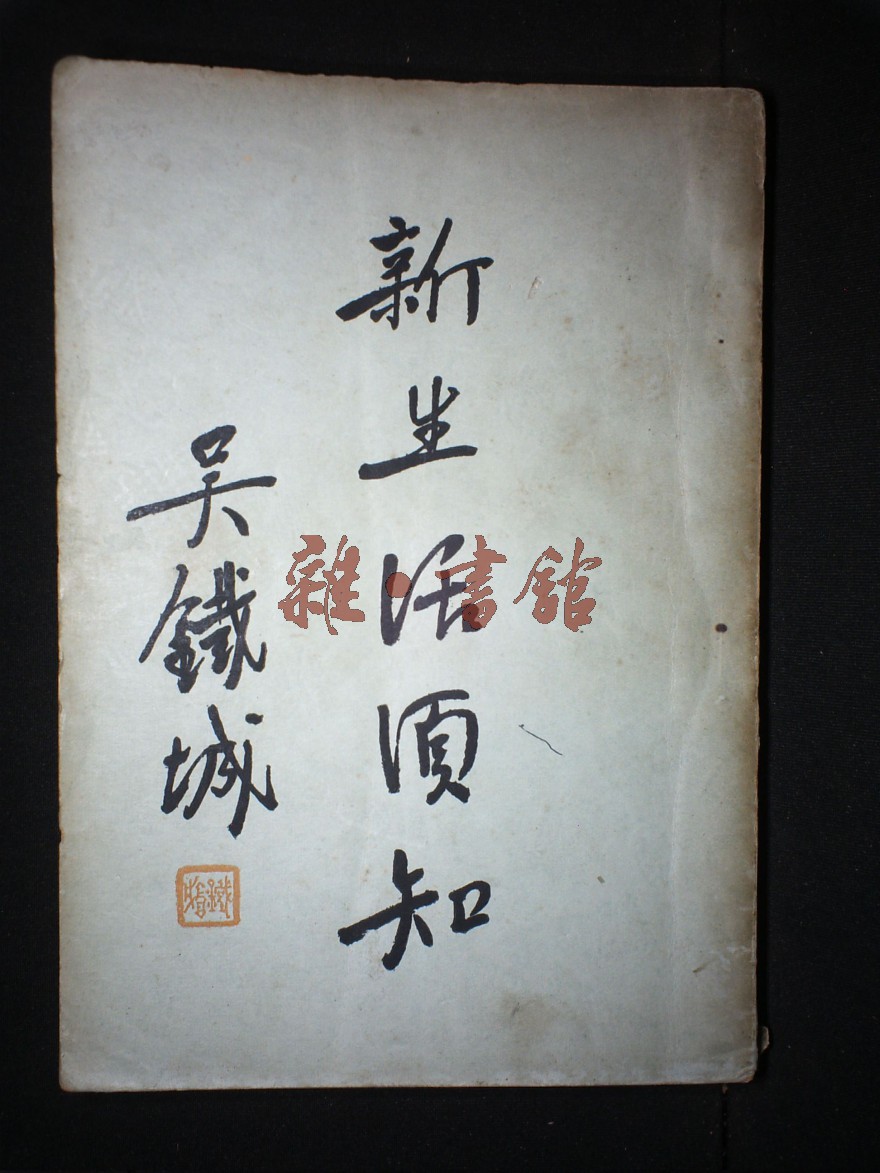 新生活須知
吳鐵城
雜·書館